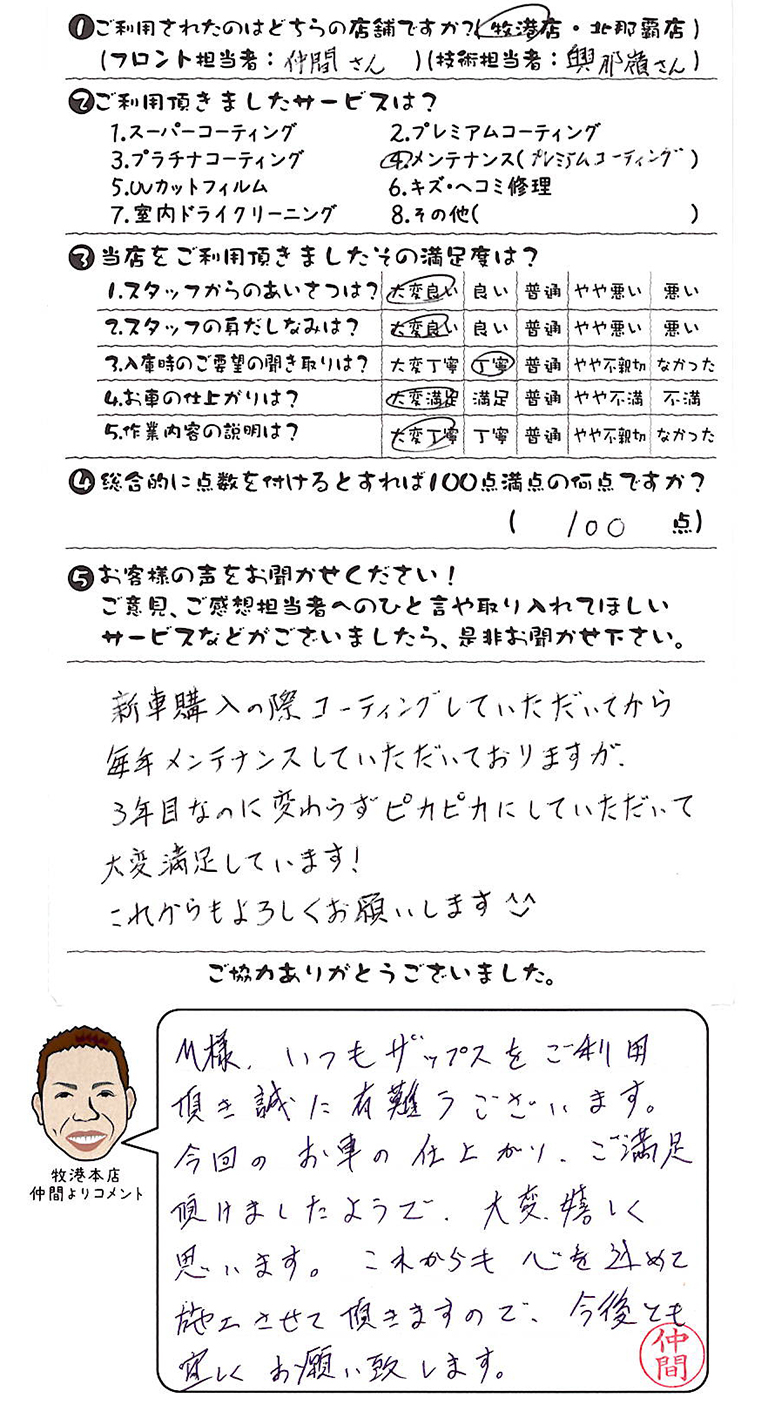 ❶ご利用されたのはどちらの店舗ですか?(牧港店・北那覇店)
(フロント担当者：仲間さん )(技術担当者：與那嶺さん)
❷ご利用頂きましたサービスは?
1.スーパーコーティング 2.プレミアムコーティング
3.プラチナコーティング 4.メンテナンス(プレミアムコーティング)
5.UVカットフィルム 6.キズ・ヘコミ修理
7.室内ドライクリーニング 8.その他( )
❸当店をご利用頂きましたその満足度は?
1.スタッフからのあいさつは? 大変良い 良い 普通 やや悪い 悪い
2.スタッフの身だしなみは? 大変良い 良い 普通 やや悪い 悪い
3.入庫時のご要望の聞き取りは? 大変丁寧 丁寧 普通 やや不親切 なかった
4.お車の仕上がりは? 大変満足 満足 普通 やや不満 不満
5.作業内容の説明は? 大変丁寧 丁寧 普通 やや不親切 なかった
❹総合的に点数を付けるとすれば100点満点の何点ですか?
( 100 点)
❺お客様の声をお聞かせください!
ご意見、ご感想担当者へのひと言や取り入れてほしい
サービスなどがございましたら、是非お聞かせ下さい。
新車購入の際コーティングしていただいてから
毎年メンテナンスしていただいておりますが、
3年目なのに変わらずピカピカにしていただいて
大変満足しています!
これからもよろしくお願いします^^
ご協力ありがとうございました。
M様、いつもザップスをご利用
頂き誠に有難うございます。
今回のお車の仕上がり、ご満足
頂けましたようで、大変嬉しく
思います。これからも心を込めて
施工させて頂きますので、今後とも
宜しくお願い致します。
仲間
牧港本店
仲間よりコメント